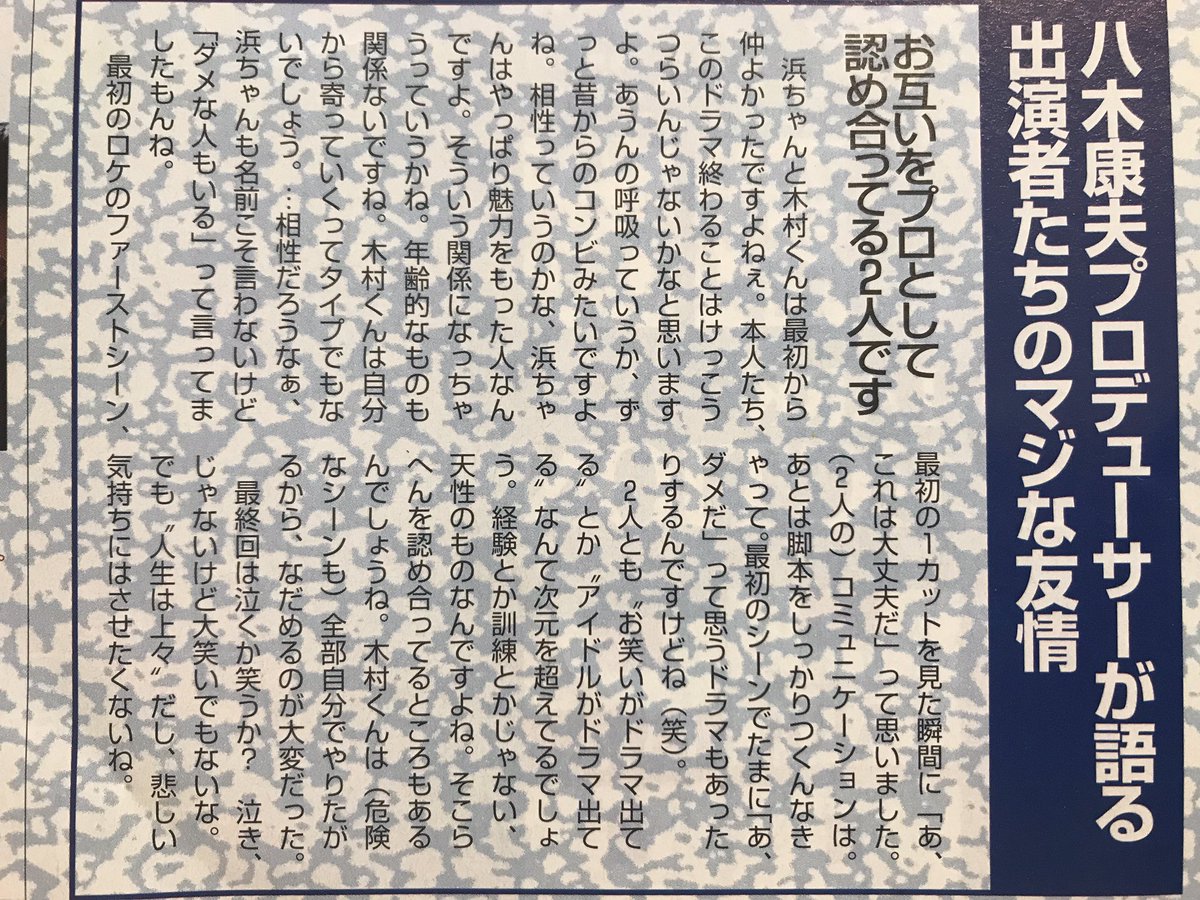 八木康夫プロデューサーが語る
出演者たちのマジな友情
お互いをプロとして
認め合ってる2人です
浜ちゃんと木村くんは最初から
仲よかったですよねぇ。本人たち、
このドラマ終わることはけっこう
つらいんじゃないかなと思います
よ。あうんの呼吸っていうか、ず
っと昔からのコンビみたいですよ
ね。相性っていうのかな、浜ちゃ
んはやっぱり魅力をもった人なん
ですよ。そういう関係になっちゃ
うっていうかね。年齢的なものも
関係ないですね。木村くんは自分
から寄っていくってタイプでもな
いでしょう。…相性だろうなぁ、
浜ちゃんも名前こそ言わないけど
「ダメな人もいる」って言ってま
したもんね。
最初のロケのファーストシーン、
最初の1カットを見た瞬間に「あ、
これは大丈夫だ」って思いました。
(2人の)コミュニケーションは。
あとは脚本をしっかりつくんなき
ゃって。最初のシーンでたまに「あ、
ダメだ」って思うドラマもあった
りするんですけどね(笑)。
2人とも〝お笑いがドラマ出て
る〟とか〝アイドルがドラマ出て
る〟なんて次元を超えてるでしょ
う。経験とか訓練とかじゃない、
天性のものなんですよね。そこら
へんを認め合ってるところもある
んでしょうね。木村くんは(危険
なシーンも)全部自分でやりたが
るから、なだめるのが大変だった。
最終回は泣くか笑うか? 泣き、
じゃないけど大笑いでもないな。
でも〝人生は上々〟だし、悲しい
気持ちにはさせたくないね。